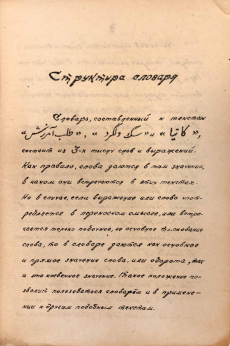 Структура словаря
Словарь, составленный к текстам
„کاتیا“ и „سگ ولگرد“, „طلب آمرزش“,
состоит из 3-х тысяч слов и выражений.
Как правило, слова даются в том значении,
в каком они встречаются в этих текстах.
Но в случае, если выражение или слово упот-
ребляется в переносном смысле, или встре-
чается только побочное, не основное толкование
слова, то в словаре даются как основное
и прямое значение слова, или оборота, так
и это косвенное значение. Такое положение поз-
волит пользоваться словарём и в применении
к другим подобным текстам.